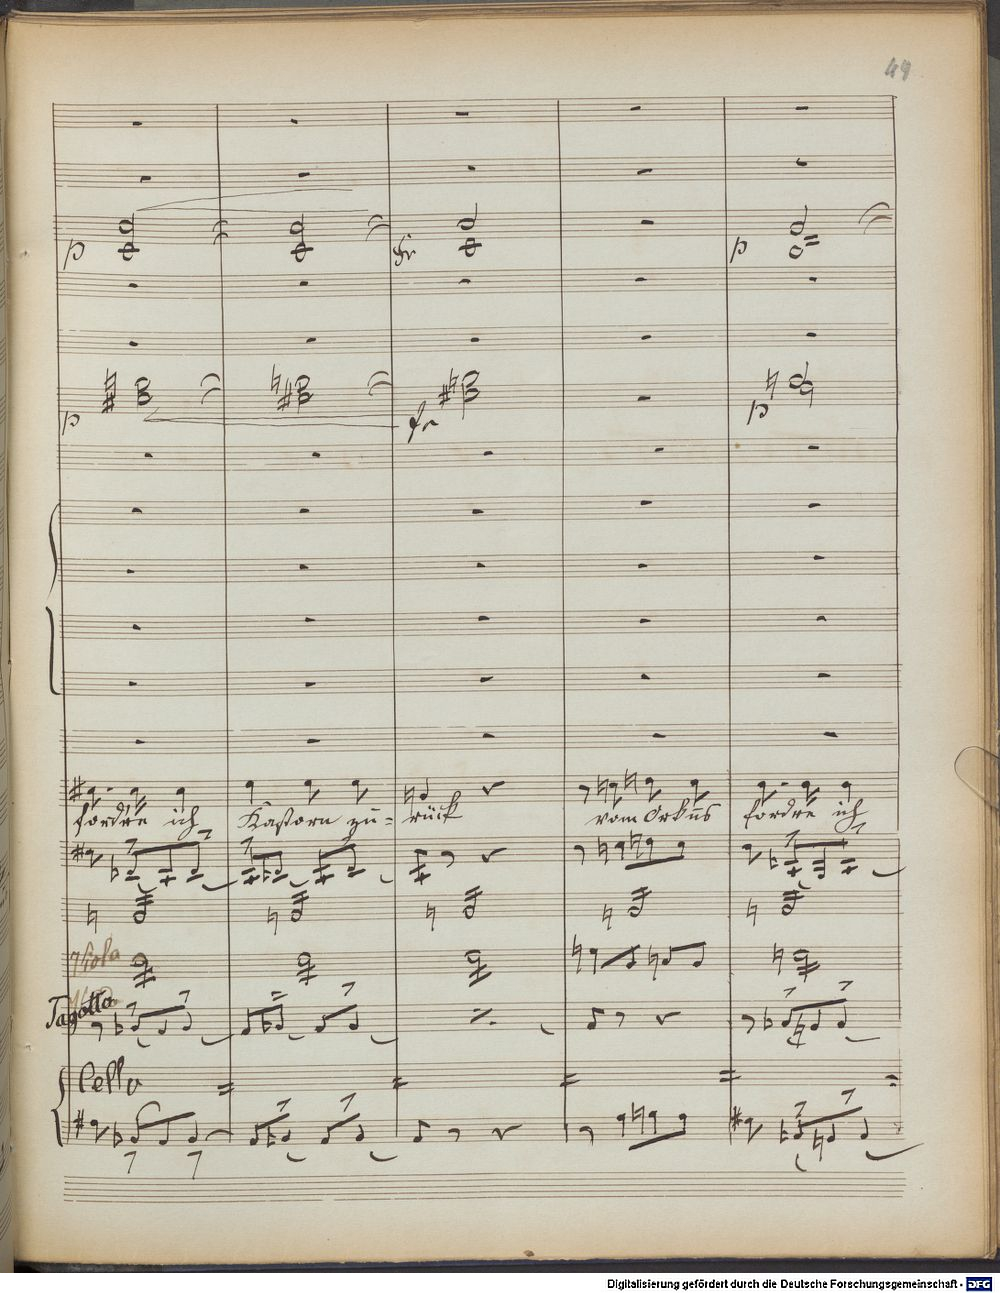 49
p
fr
p
p
fr
p
fordre ich Kastorn zu= rück vom Orkus fordre ich
Viola
Fagotto
Cello
Digitalisierung gefördert durch die Deutsche Forschungsgemeinschaft - DFG